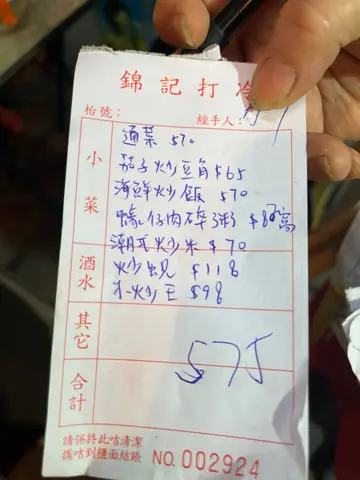 錦記打冷
枱號： 經手人：
小菜
通菜 $70
茄子炒豆角 $65
海鮮炒飯 $70
蠔仔肉碎粥
潮式炒米 $70
酒水
炒蜆 $118
小炒王 $98
其它
合計
575
請保持此咭清潔
攜咭到櫃面結賬
NO.002924